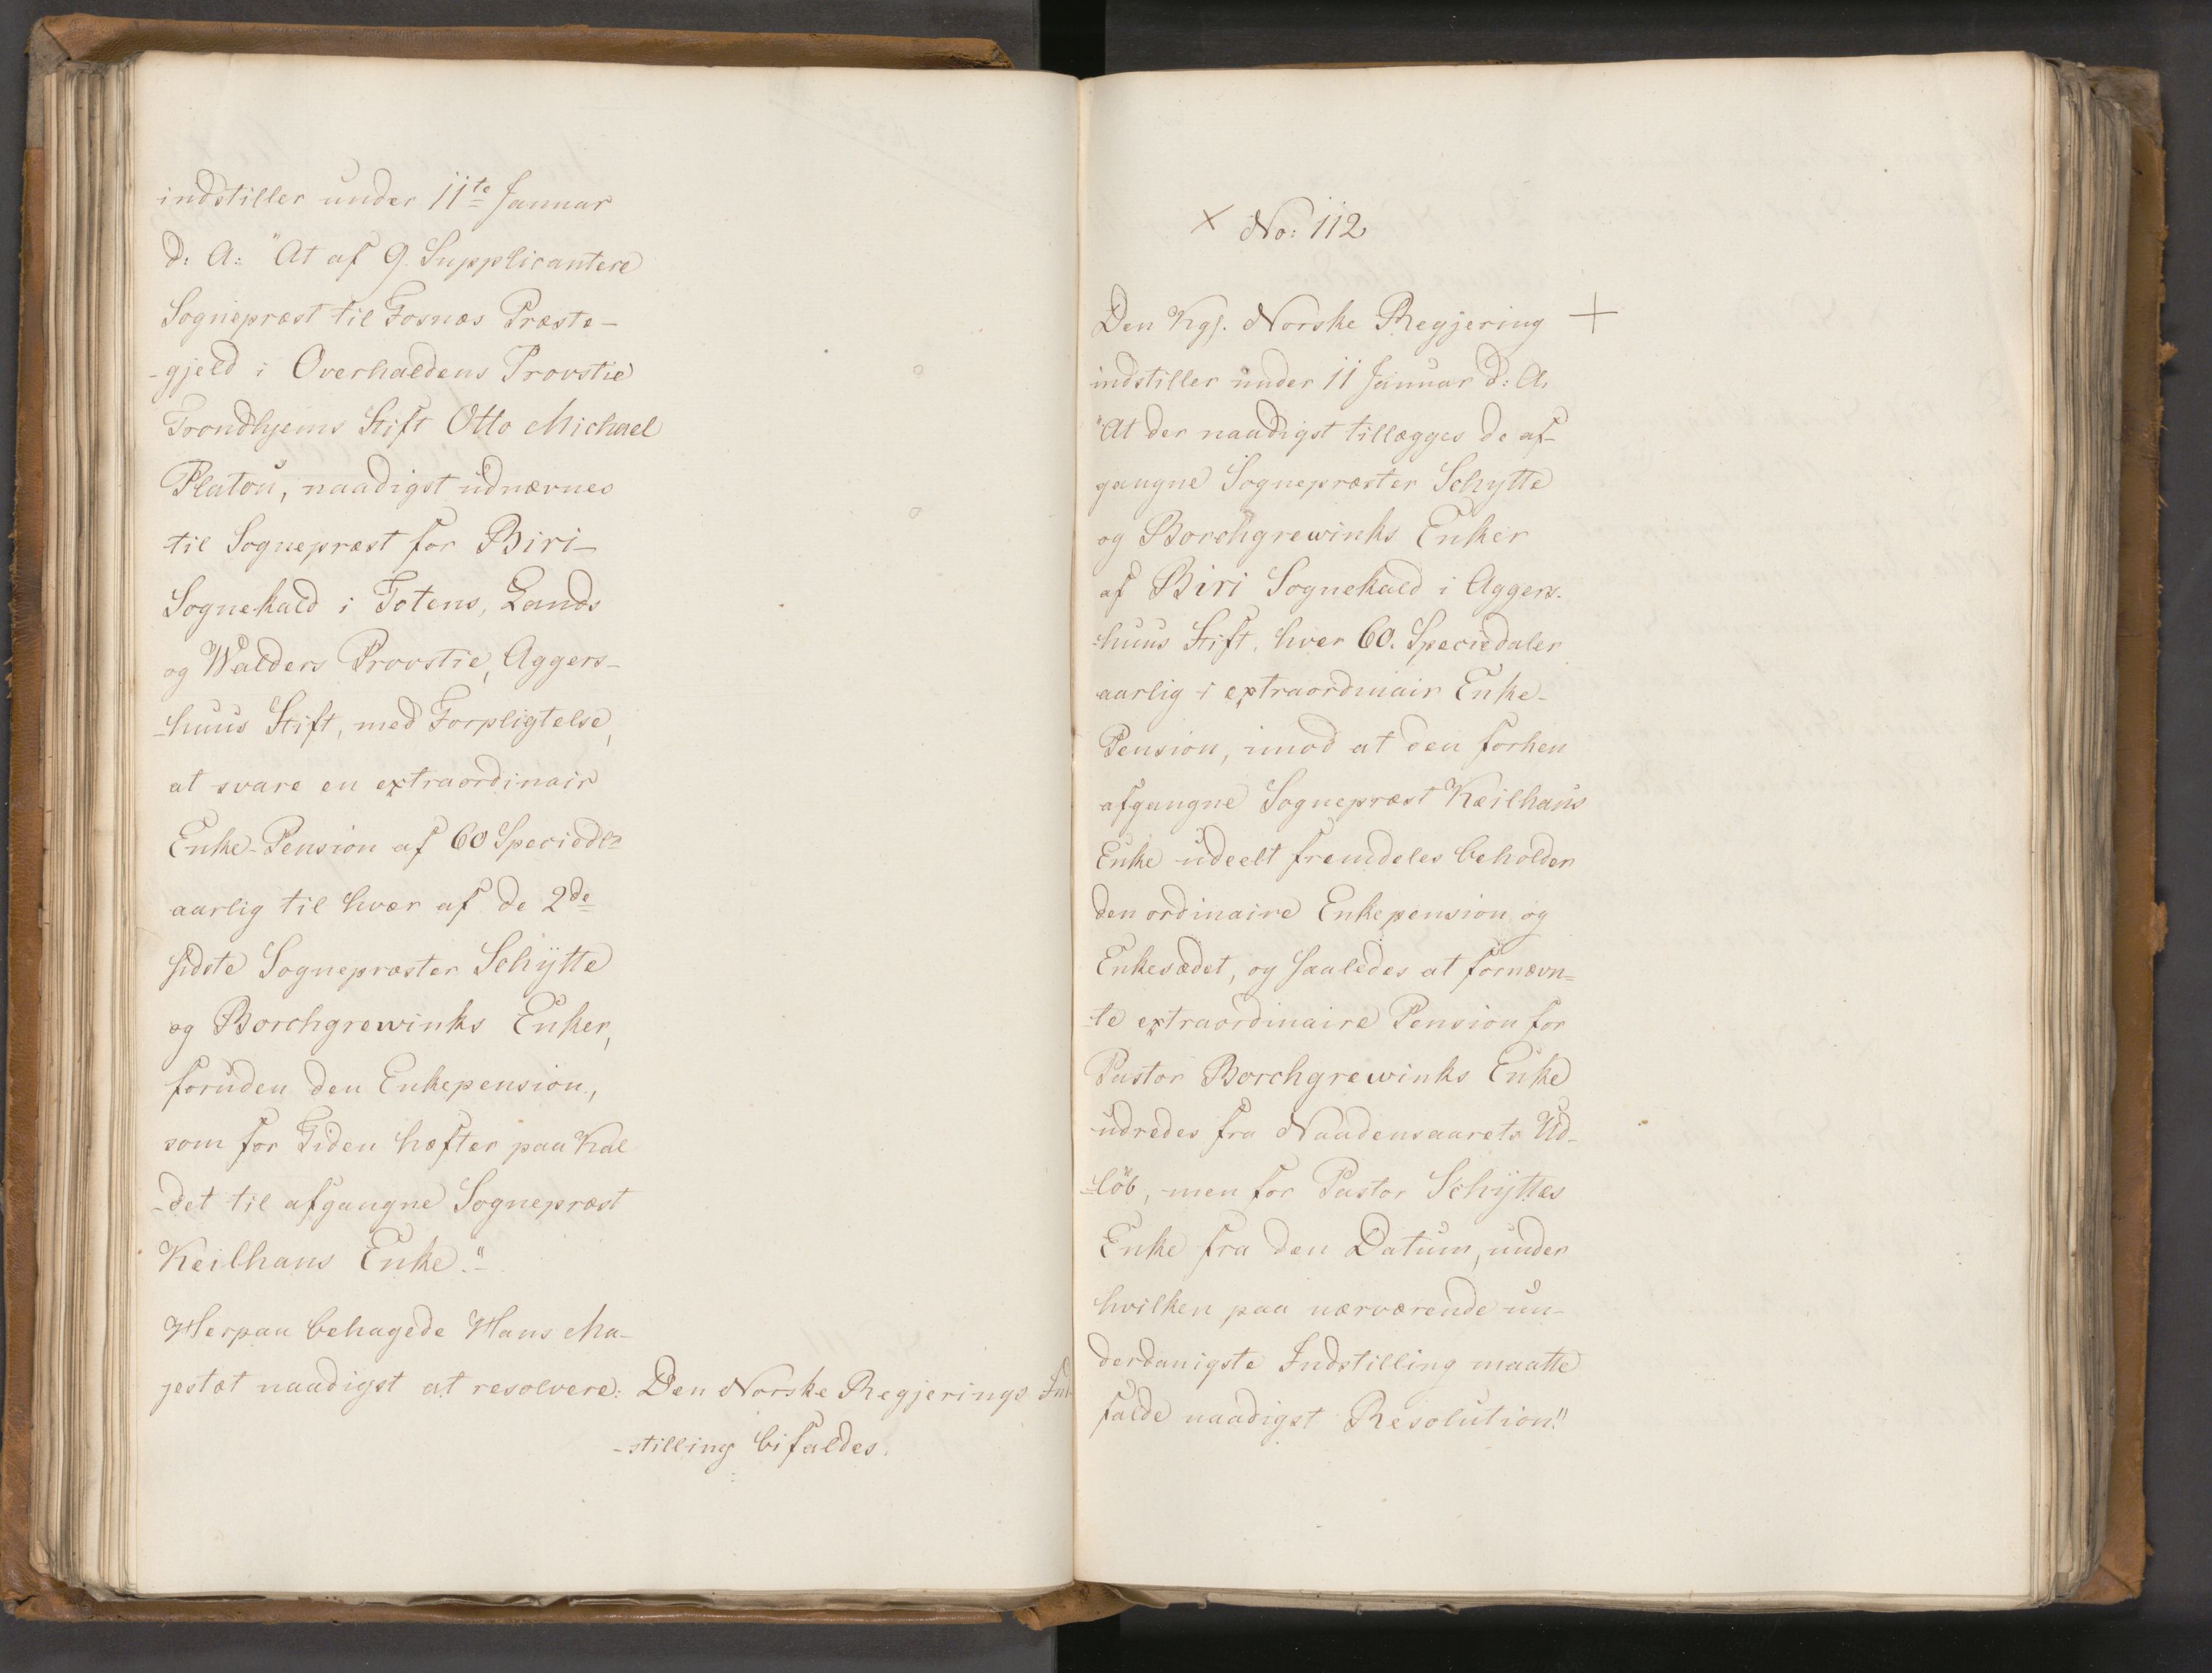 indstiller under 11te Januar
d: A: "At af 9 Supplicantere
Sognepræst til Fosnæs Præste-
-gjeld i Overhaldens Provstie
Trondhjems Stift Otto Michael
Platou, naadigst udnævnes
til Sognepræst for Biri-
Sognekald i Totens, Lands
og Walders Provstie, Aggers-
-huus Stift, med Forpligtelse,
at svare en extraordinair
Enke-Pension af 60 Speciedlr
aarlig til hver af de 2de
sidste Sognepræster Schÿtte
og Borchgrewinks Enker,
foruden den Enkepension,
som for Tiden hæfter paa Kal
-det til afgangne Sognepræst
Keilhaus Enke."-
Herpaa behagede Hans Ma-
jestæt naadigst at resolvere: Den Norske Regjerings Ind-
-stilling bifaldes.
× No: 112
Den Kgl. Norske Regjering +
indstiller under 11 Januar d: A.
"At der naadigst tillægges de af-
gangne Sognepræster Schytte
og Borchgrewinks Enker
af Biri Sognekald i Aggers-
-huus Stift, hver 60. Speciedaler
aarlig i extraordinair Enke-
Pension, imod at den forhen
afgangne Sognepræst Keilhaus
Enke udeelt fremdeles beholder
den ordinaire Enkepension og
Enkesædet, og saaledes at fornævn=
-te extraordinaire Pension for
Pastor Borchgrewinks Enke
udredes fra Naadensaarets Ud-
-løb, men for Pastor Schÿttes
Enke fra den Datum, under
hvilken paa nærværende un-
derdanigste Indstilling maatte
falde naadigst Resolution"